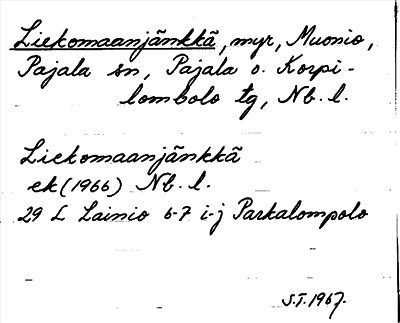 Liekomaanjänkkä, myr, Muonio,
Pajala sn, Pajala o. Korpi-
lombolo tg, Nb. l.
Liekomaanjänkkä
ek (1966) Nb. l.
29 L Lainio 6-7 i-j Parkalompolo
S.T. 1967.